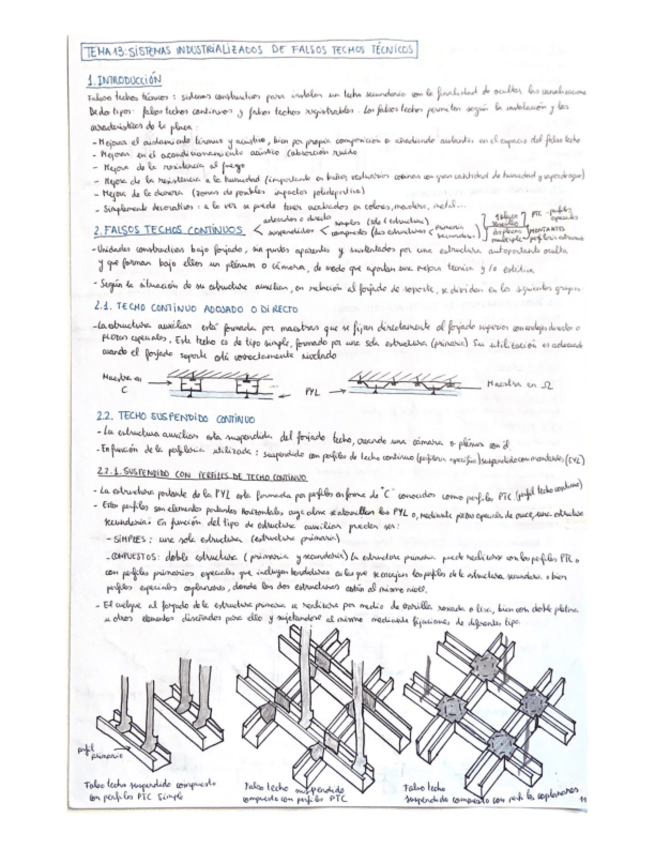 TEMA 13: SISTEMAS INDUSTRIALIZADOS DE FALSOS TECHOS TÉCNICOS
1. INTRODUCCIÓN
Falsos techos técnicos: sistemas constructivos para instalar un techo secundario con la finalidad de ocultar las canalizaciones
De dos tipos: falsos techos continuos y falsos techos registrables. Los falsos techos permiten según la instalación y las
características de la placa:
- Mejorar el aislamiento térmico y acústico, bien por propia composición o añadiendo aislantes en el espacio del falso techo
- Mejorar en el acondicionamiento acústico (absorción ruido
- Mejora de la resistencia al fuego
- Mejora de la resistencia a la humedad (importante en baños vestuarios cocinas con gran cantidad de humedad y vapor de agua)
- Mejora de la dureza (zonas de posibles impactos polideportiva)
- Simplemente decorativos: a la vez se puede tener acabados en colores, madera, metal...
2. FALSOS TECHOS CONTINUOS
adosados o directo
suspendidos
simples (solo 1 estructura)
compuestos (dos estructuras (primaria secundaria)
PTC - perfiles especiales
MONTANTES
- Unidades constructivas bajo forjado, sin juntas aparentes y sustentados por una estructura autoportante oculta
y que forman bajo ellos un plénum o cámara, de modo que aportan una mejora técnica y/o estética.
- Según la situación de su estructura auxiliar, en relación al forjado de soporte, se dividen en los siguientes grupos
2.1. TECHO CONTINUO ADOSADO O DIRECTO
- La estructura auxiliar está formada por maestras que se fijan directamente al forjado superior con anclajes directos o
piezas especiales. Este techo es de tipo simple, formado por una sola estructura (primaria) Su utilización es adecuada
cuando el forjado soporte está correctamente nivelado
Maestra en C
PYL
Maestra en Ω
2.2. TECHO SUSPENDIDO CONTINUO
- La estructura auxiliar esta suspendida del forjado techo, creando una cámara o plénum con él.
- En función de la perfilería utilizada: suspendido con perfiles de techo continuo (perfilería específica) suspendido con montantes
2.2.1. SUSPENDIDO CON PERFILES DE TECHO CONTINUO
- La estructura portante de la PYL esta formada por perfiles en forma de "C" conocidos como perfiles PTC (perfil techo continuo)
- Estos perfiles son elementos portantes horizontales a cuyo alma se atornillan las PYL o, mediante piezas especiales de cruce, una estructura
secundaria. En función del tipo de estructura auxiliar pueden ser:
- SIMPLES: una sola estructura (estructura primaria)
- COMPUESTOS: doble estructura (primaria y secundaria) La estructura primaria puede realizarse con los perfiles PTC o
con perfiles primarios especiales que incluyen hendiduras en las que se encajan los perfiles de la estructura secundaria o bien
perfiles especiales coplanares, donde las dos estructuras están al mismo nivel.
- El cuelgue al forjado de la estructura primaria se realizara por medio de varilla roscada o lisa, bien con doble pletina
u otros elementos diseñados para ello y sujetandose al mismo mediante fijaciones de diferentes tipo.
perfil primario
Falso techo suspendido compuesto
con perfiles PTC Simple
Falso techo suspendido
compuesto con perfiles PTC
Falso techo
suspendido compuesto con perfiles coplanares